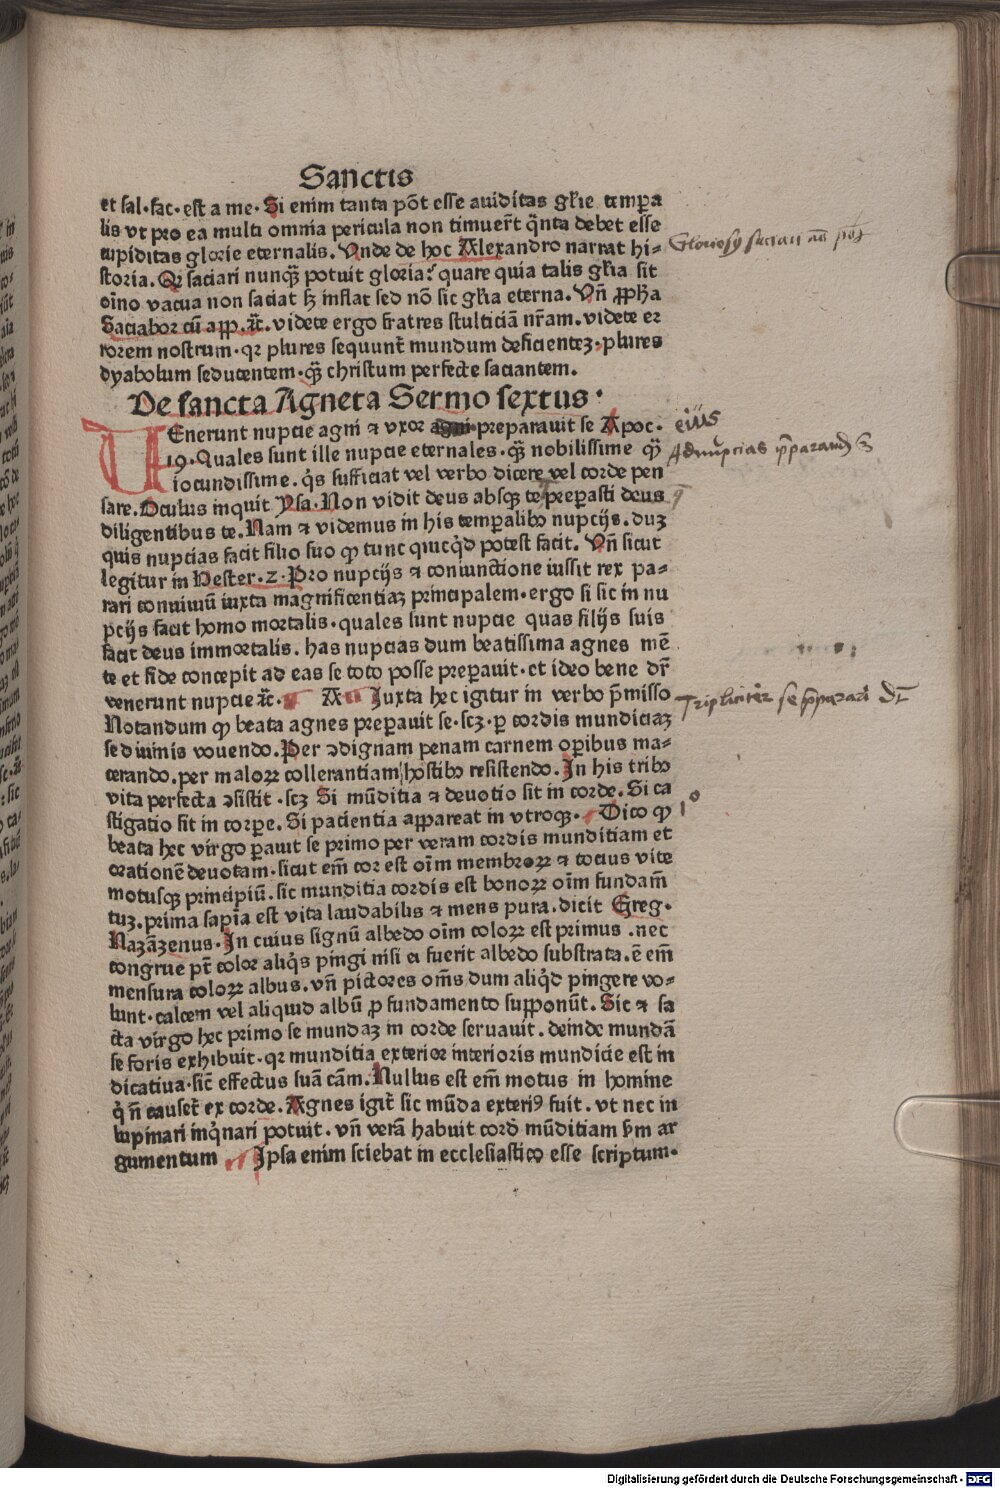 Sanctis
et sal. fac. est a me. Si enim tanta põt esse auiditas gl̄ie tempa
lis vt pro ea multi omnia pericula non timuer̄t q̃nta debet esse
cupiditas glorie eternalis. Vnde de hoc Alexandro narrat hi-
storia. Qr saciari nunq̃ potuit gloria? quare quia talis gl̄ia sit
oīno vacua non saciat sꝫ inflat sed nō sic gl̄ia eterna. Vñ ꝓpħa
Saciabor cū app. ⁊c̃. videte ergo fratres stulticiā nr̄am. videte er
rorem nostrum. qr plures sequunt̃ mundum deficienteꝫ. plures
dyabolum seducentem. q̃ christum perfecte saciantem.
De sancta Agneta Sermo sextus.
VEnerunt nuptie agni ⁊ vxor preparauit se Apoc. eiꝰ
19. Quales sunt ille nuptie eternales. q̃ nobilissime qꝫ
iocundissime. q̃s sufficiat vel verbo dicere vel corde pen
sare. Oculus inquit Ysa. Non vidit deus absqꝫ te preparasti deus
diligentibus te. Nam ⁊ videmus in his temperalibꝫ nuptijs. duꝫ
quis nuptias facit filio suo ꝙ tunc quicq̇d potest facit. Vñ sicut
legitur in Hester. 2. Pro nuptijs ⁊ coniunctione iussit rex pa-
rari conuiuiū iuxta magnificentiaꝫ principalem. ergo si sic in nu
pcijs facit homo mortalis. quales sunt nuptie quas filijs suis
facit deus immortalis. has nuptias dum beatissima agnes mē
te et fide concepit ad eas se toto posse preperauit. et ideo bene dr̄
venerunt nuptie ⁊c̃. Juxta hec igitur in verbo p̄misso
Notandum ꝙ beata agnes preperauit se. scꝫ. ꝑ cordis mundiciaꝫ
se diuinis vouendo. Per ↄdignam penam carnem oꝑibus ma-
cerando. per maloꝝ collerantiam hostibꝫ resistendo. In his tribꝫ
vita perfecta ↄsistit. scꝫ Si mūditia ⁊ deuotio sit in corde. Si ca
stigatio sit in corpe. Si pacientia appareat in vtroqꝫ. Dico ꝙ
beata hec virgo ꝑauit se primo per veram cordis munditiam et
orationē deuotam. sicut em̄ cor est oīm membroꝝ ⁊ tocius vite
motusqꝫ principiū. sic munditia cordis est bonoꝝ oīm fundam̄
tuꝫ. prima sapīa est vita laudabilis ⁊ mens pura. dicit Greg.
Nazāzenus. In cuius signū albedo oīm coloꝝ est primus. nec
congrue pt̄ color aliq̇s pingi nisi ei fuerit albedo substrata. ē em̄
mensura coloꝝ albus. vñ pictores om̄s dum aliq̇d pingere vo-
lunt. calcem vel aliquid albū ꝓ fundamento supponūt. Sic ⁊ sa
cta virgo hec primo se mundaꝫ in corde seruauit. deinde mundā
se foris exhibuit. qr munditia exterior interioris mundicie est in
dicatiua. sic̄ effectus suā cām. Nullus est em̄ motus in homine
q̇ ñ causet̃ ex corde. Agnes igit̃ sic mūda exteriꝰ fuit. vt nec in
lupinari inq̇nari potuit. vñ verā habuit cord̄ mūditiam ẜm ar
gumentum Ipsa enim sciebat in ecclesiastico esse scriptum.
Ad nuptias p̄parand
Tripliciter se p̄parari dr̄
1o
Digitalisierung gefördert durch die Deutsche Forschungsgemeinschaft - DFG